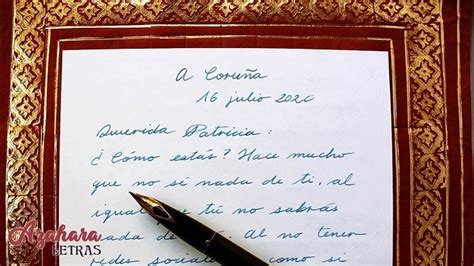 A Coruña
16 julio 2020
Querida Patricia:
¿Cómo estás? Hace mucho
que no sé nada de ti, al
tú no sabrás
nada de Al no tener
redes como si
Azahara
LETRAS